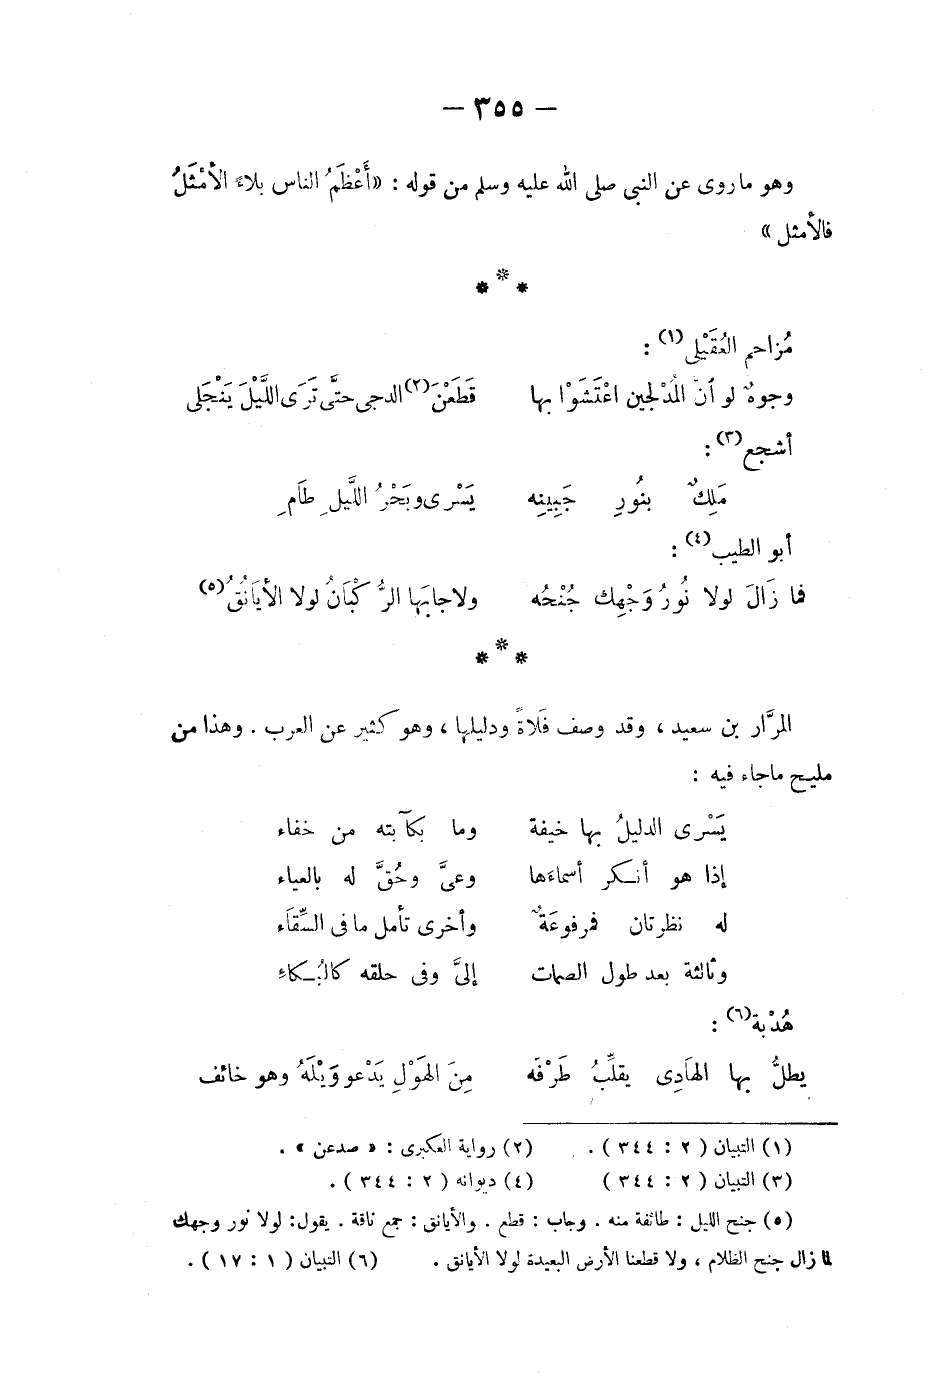 — ٣٥٥ —
وهو ماروى عن النبى صلى الله عليه وسلم من قوله : «أَعْظَمُ الناس بلاءً الأمْثَلُ
فالأمثل»
* * *
مُزاحم العُقَيْلى(١) :
وجوهٌ لو أنّ المُدْلجين اعْتَشَوْا بها قَطَعْنَ(٢) الدجى حتَّى تَرَى اللَّيْلَ يَنْجَلى
أشجع(٣) :
مَلِكٌ بنُورِ جَبِينِه يَسْرى وبَحْرُ اللَّيلِ طَامِ
أبو الطيب(٤) :
فما زَالَ لولا نُورُ وَجْهِك جُنْحُه ولا جابَها الرُّكْبَانُ لولا الأيَانُقُ(٥)
* * *
المرَّار بن سعيد ، وقد وصف فَلاةً ودليلها ، وهو كثير عن العرب . وهذا من
مليح ماجاء فيه :
يَسْرى الدليلُ بها خيفة وما بكآبته من خفاء
إذا هو أنكر أسماءَها وعىَّ وحُقَّ له بالعياء
له نظرتان فمرفوعَةٌ وأخرى تأمل ما فى السِّقَاَء
وثالثة بعد طول الصمات إلىَّ وفى حلقه كالبُكاءِ
هُدْبة(٦) :
يطلُّ بها الهَادِى يقلِّبُ طَرْفَه مِنَ الهَوْلِ يَدْعو وَيْلَهُ وهو خائف
(١) التبيان ( ٢ : ٣٤٤ ) . (٢) رواية العكبرى : « صدعن » .
(٣) التبيان ( ٢ : ٣٤٤ ) (٤) ديوانه ( ٢ : ٣٤٤ ) .
(٥) جنح الليل : طائفة منه . وجاب : قطع . والأيانق : جمع ناقة . يقول: لولا نور وجهك
لما زال جنح الظلام ، ولا قطعنا الأرض البعيدة لولا الأيانق . (٦) التبيان ( ١ : ١٧ ) .